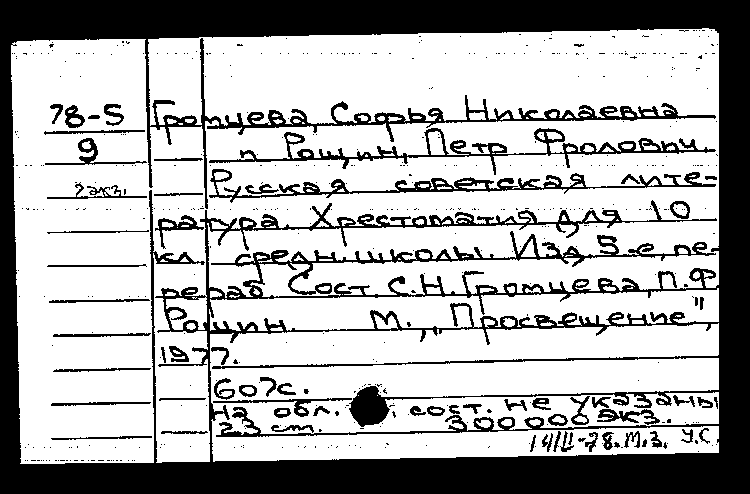 78-5 Громцева, Софья Николаевна
9 и Рощин, Петр Фролович.
2 экз. Русская советская лите-
ратура. Хрестоматия для 10
кл. средн. школы. Изд. 5-е, пе-
рераб. Сост. С.Н. Громцева, П.Ф
Рощин. М., „Просвещение",
1977.
607с.
На обл. сост. не указаны
23 см. 300000 экз.
14/II-78. М.З. У.С.